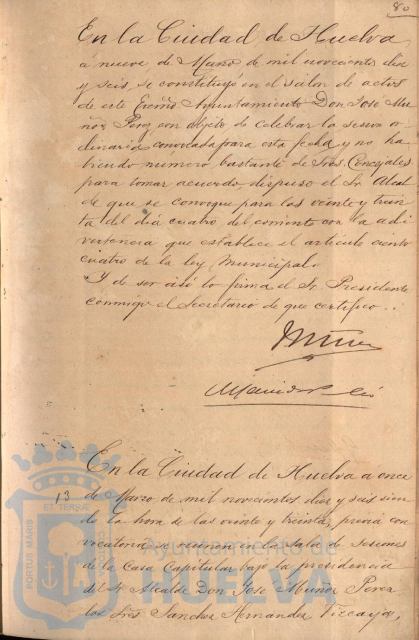 80
En la Ciudad de Huelva
a nueve de Marzo de mil novecientos diez
y seis, se constituyó en el salon de actos
de este Excmo Ayuntamiento Don José Mu-
ñoz Perez con objeto de celebrar la sesion or
dinaria convocada para esta fecha y no ha
biendo numero bastante de Sres. Concejales
para tomar acuerdo dispuso el Sr. Alcal
de que se convoque para las veinte y trein
ta del día cuatro del corriente con la ad
vertencia que establece el artículo ciento
cuatro de la ley Municipal.
Y de ser así lo firma el Sr. Presidente
conmigo el Secretario de que certifico.
Muñoz
En la Ciudad de Huelva a once
13
de Marzo de mil novecientos diez y seis sien
do la hora de las veinte y treinta, previa con
vocatoria se reunieron en la sala de sesiones
de la Casa Capitular bajo la presidencia
del Sr. Alcalde Don José Muñoz Perez
los Sres Sanchez Hernandez, Vizcaya,
PORTUS MARIS
ET TERRÆ
Ayuntamiento de
HUELVA